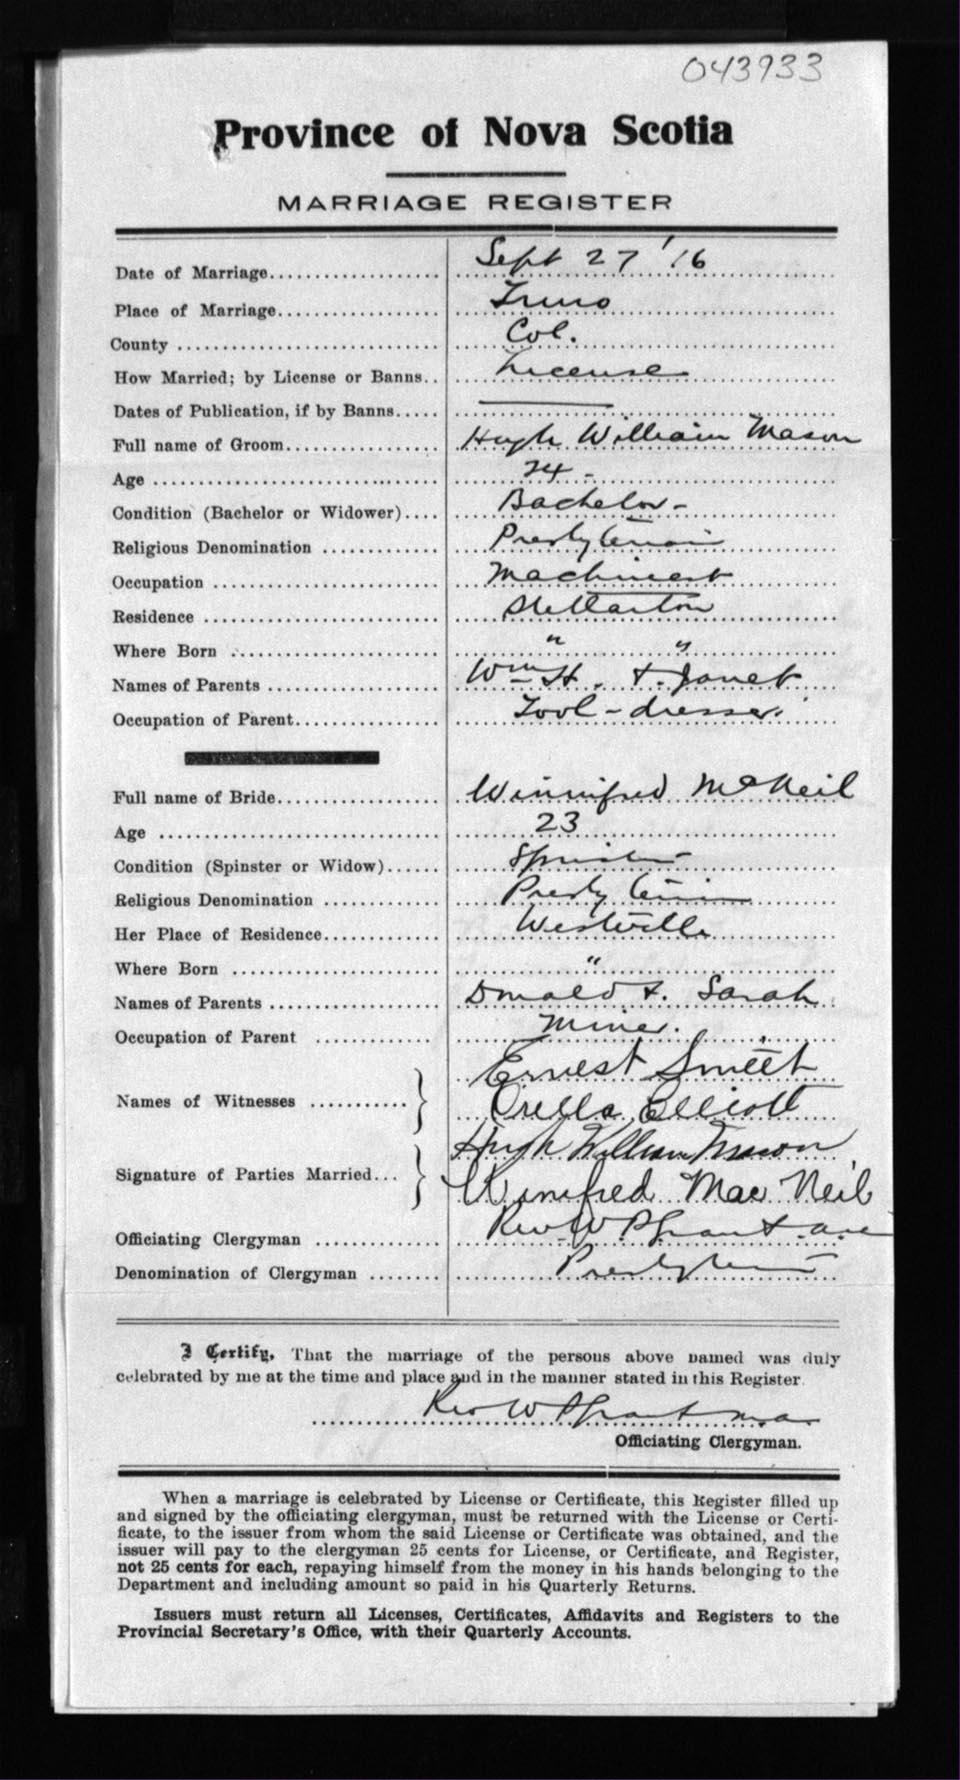 043933
Province of Nova Scotia
MARRIAGE REGISTER
Date of Marriage................... Sept 27 '16
Place of Marriage................. Truro
County ............................. Col.
How Married; by License or Banns.. License
Dates of Publication, if by Banns..... ———
Full name of Groom................. Hugh William Mason
Age ................................ 24 -
Condition (Bachelor or Widower).... Bachelor -
Religious Denomination ............ Presbyterian
Occupation ......................... Machinest
Residence .......................... Stellarton
Where Born ........................ " "
Names of Parents ................... Wm H. & Janet
Occupation of Parent................ Tool-dresser.
Full name of Bride.................. Winnifred McNeil
Age ................................ 23
Condition (Spinster or Widow)...... Spinster
Religious Denomination ............ Presbyterian
Her Place of Residence............. Westville
Where Born ........................ "
Names of Parents ................... Donald & Sarah
Occupation of Parent ............. Miner.
Names of Witnesses ............ } Ernest Smeet
Orella Elliott
Signature of Parties Married... } Hugh William Mason
Winifred Mac Neil
Officiating Clergyman .............. Rev. W. P. Grant
Denomination of Clergyman ........ Presbyterian
I Certify, That the marriage of the persons above named was duly
celebrated by me at the time and place and in the manner stated in this Register.
Rev W P Grant M.A.
Officiating Clergyman.
When a marriage is celebrated by License or Certificate, this Register filled up
and signed by the officiating clergyman, must be returned with the License or Certi-
ficate, to the issuer from whom the said License or Certificate was obtained, and the
issuer will pay to the clergyman 25 cents for License, or Certificate, and Register,
not 25 cents for each, repaying himself from the money in his hands belonging to the
Department and including amount so paid in his Quarterly Returns.
Issuers must return all Licenses, Certificates, Affidavits and Registers to the
Provincial Secretary's Office, with their Quarterly Accounts.